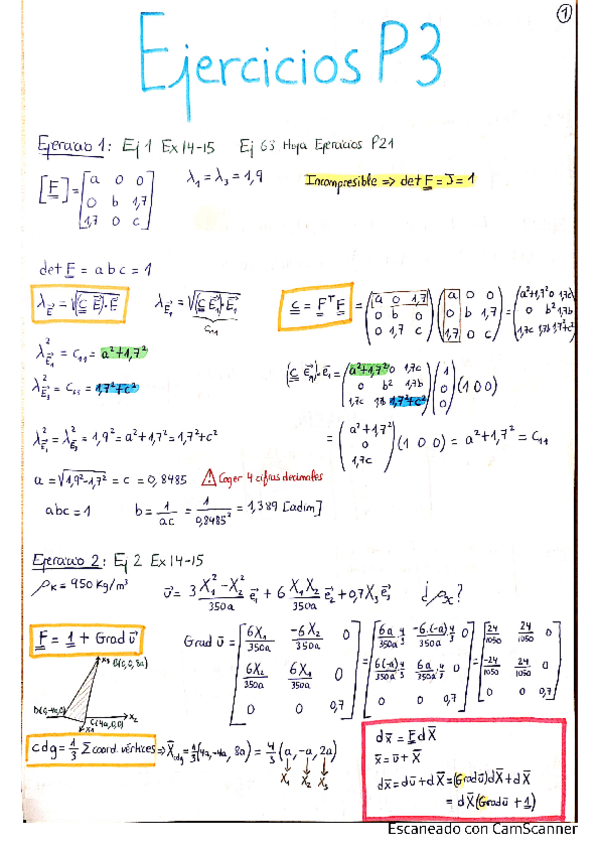 1
Ejercicios P3
Ejercicio 1: Ej 1 Ex 14-15 Ej 63 Hoja Ejercicios P21
[F] = [a 0 0; 0 b 1,7; 1,7 0 c] λ₁ = λ₃ = 1,9 Incompresible => det F = J = 1
det F = a b c = 1
λ_E = √(C E)·E λ_E₁ = √(C E₁)·E₁ C₁₁ C = Fᵀ F = (a 0 1,7; 0 b 0; 0 1,7 c) (a 0 0; 0 b 1,7; 1,7 0 c) = (a²+1,7² 0 1,7c; 0 b² 1,7b; 1,7c 1,7b 1,7²+c²)
λ²_E₁ = C₁₁ = a²+1,7²
(C E₁)·E₁ = (a²+1,7² 0 1,7c; 0 b² 1,7b; 1,7c 1,7b 1,7²+c²) (1; 0; 0) (1 0 0)
= C₃₃ = 1,7²+c²
λ²_E₁ = λ²_E₃ = 1,9² = a²+1,7² = 1,7²+c²
= (a²+1,7²; 0; 1,7c) (1 0 0) = a²+1,7² = C₁₁
a = √1,9²-1,7² = c = 0,8485 ⚠ Coger 4 cifras decimales
abc = 1 b = 1/ac = 1/0,8485² = 1,389 [adim]
Ejercicio 2: Ej 2 Ex 14-15
ρ_K = 950 Kg/m³ u = 3 X₁²-X₂²/350a e₁ + 6 X₁X₂/350a e₂ + 0,7X₃e₃ ¿ρx?
F = 1 + Grad u
Grad u = [6X₁/350a -6X₂/350a 0; 6X₂/350a 6X₁/350a 0; 0 0 0,7] = [6a/350a·4/3 -6·(-a)/350a 4/3 0; 6(-a)/350a 4/3 6a/350a·4/3 0; 0 0 0,7] = [24/1050 24/1050 0; -24/1050 24/1050 0; 0 0 0,7]
X₃ B(0,0,8a)
D(0,-4a,0) C(4a,0,0) X₂
X₁
cdg = 1/3 Σ coord. vértices => X_cdg = 1/3(4a,-4a, 8a) = 4/3 (a,-a, 2a)
X₁ X₂ X₃
dx = F dX
x = u + X
dx = du + dX = (Grad u)dX + dX
= dX(Grad u + 1)
Escaneado con CamScanner